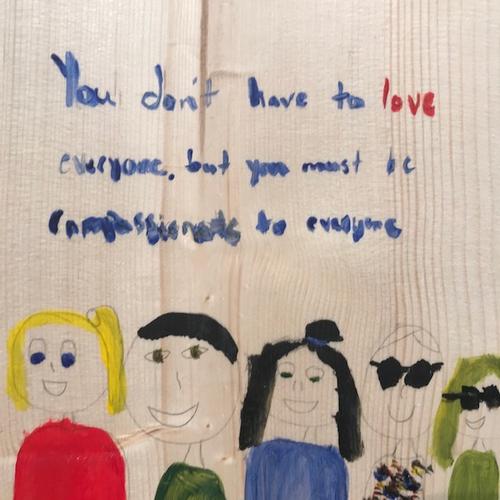 You don't have to love
everyone, but you must be
compassionate to everyone